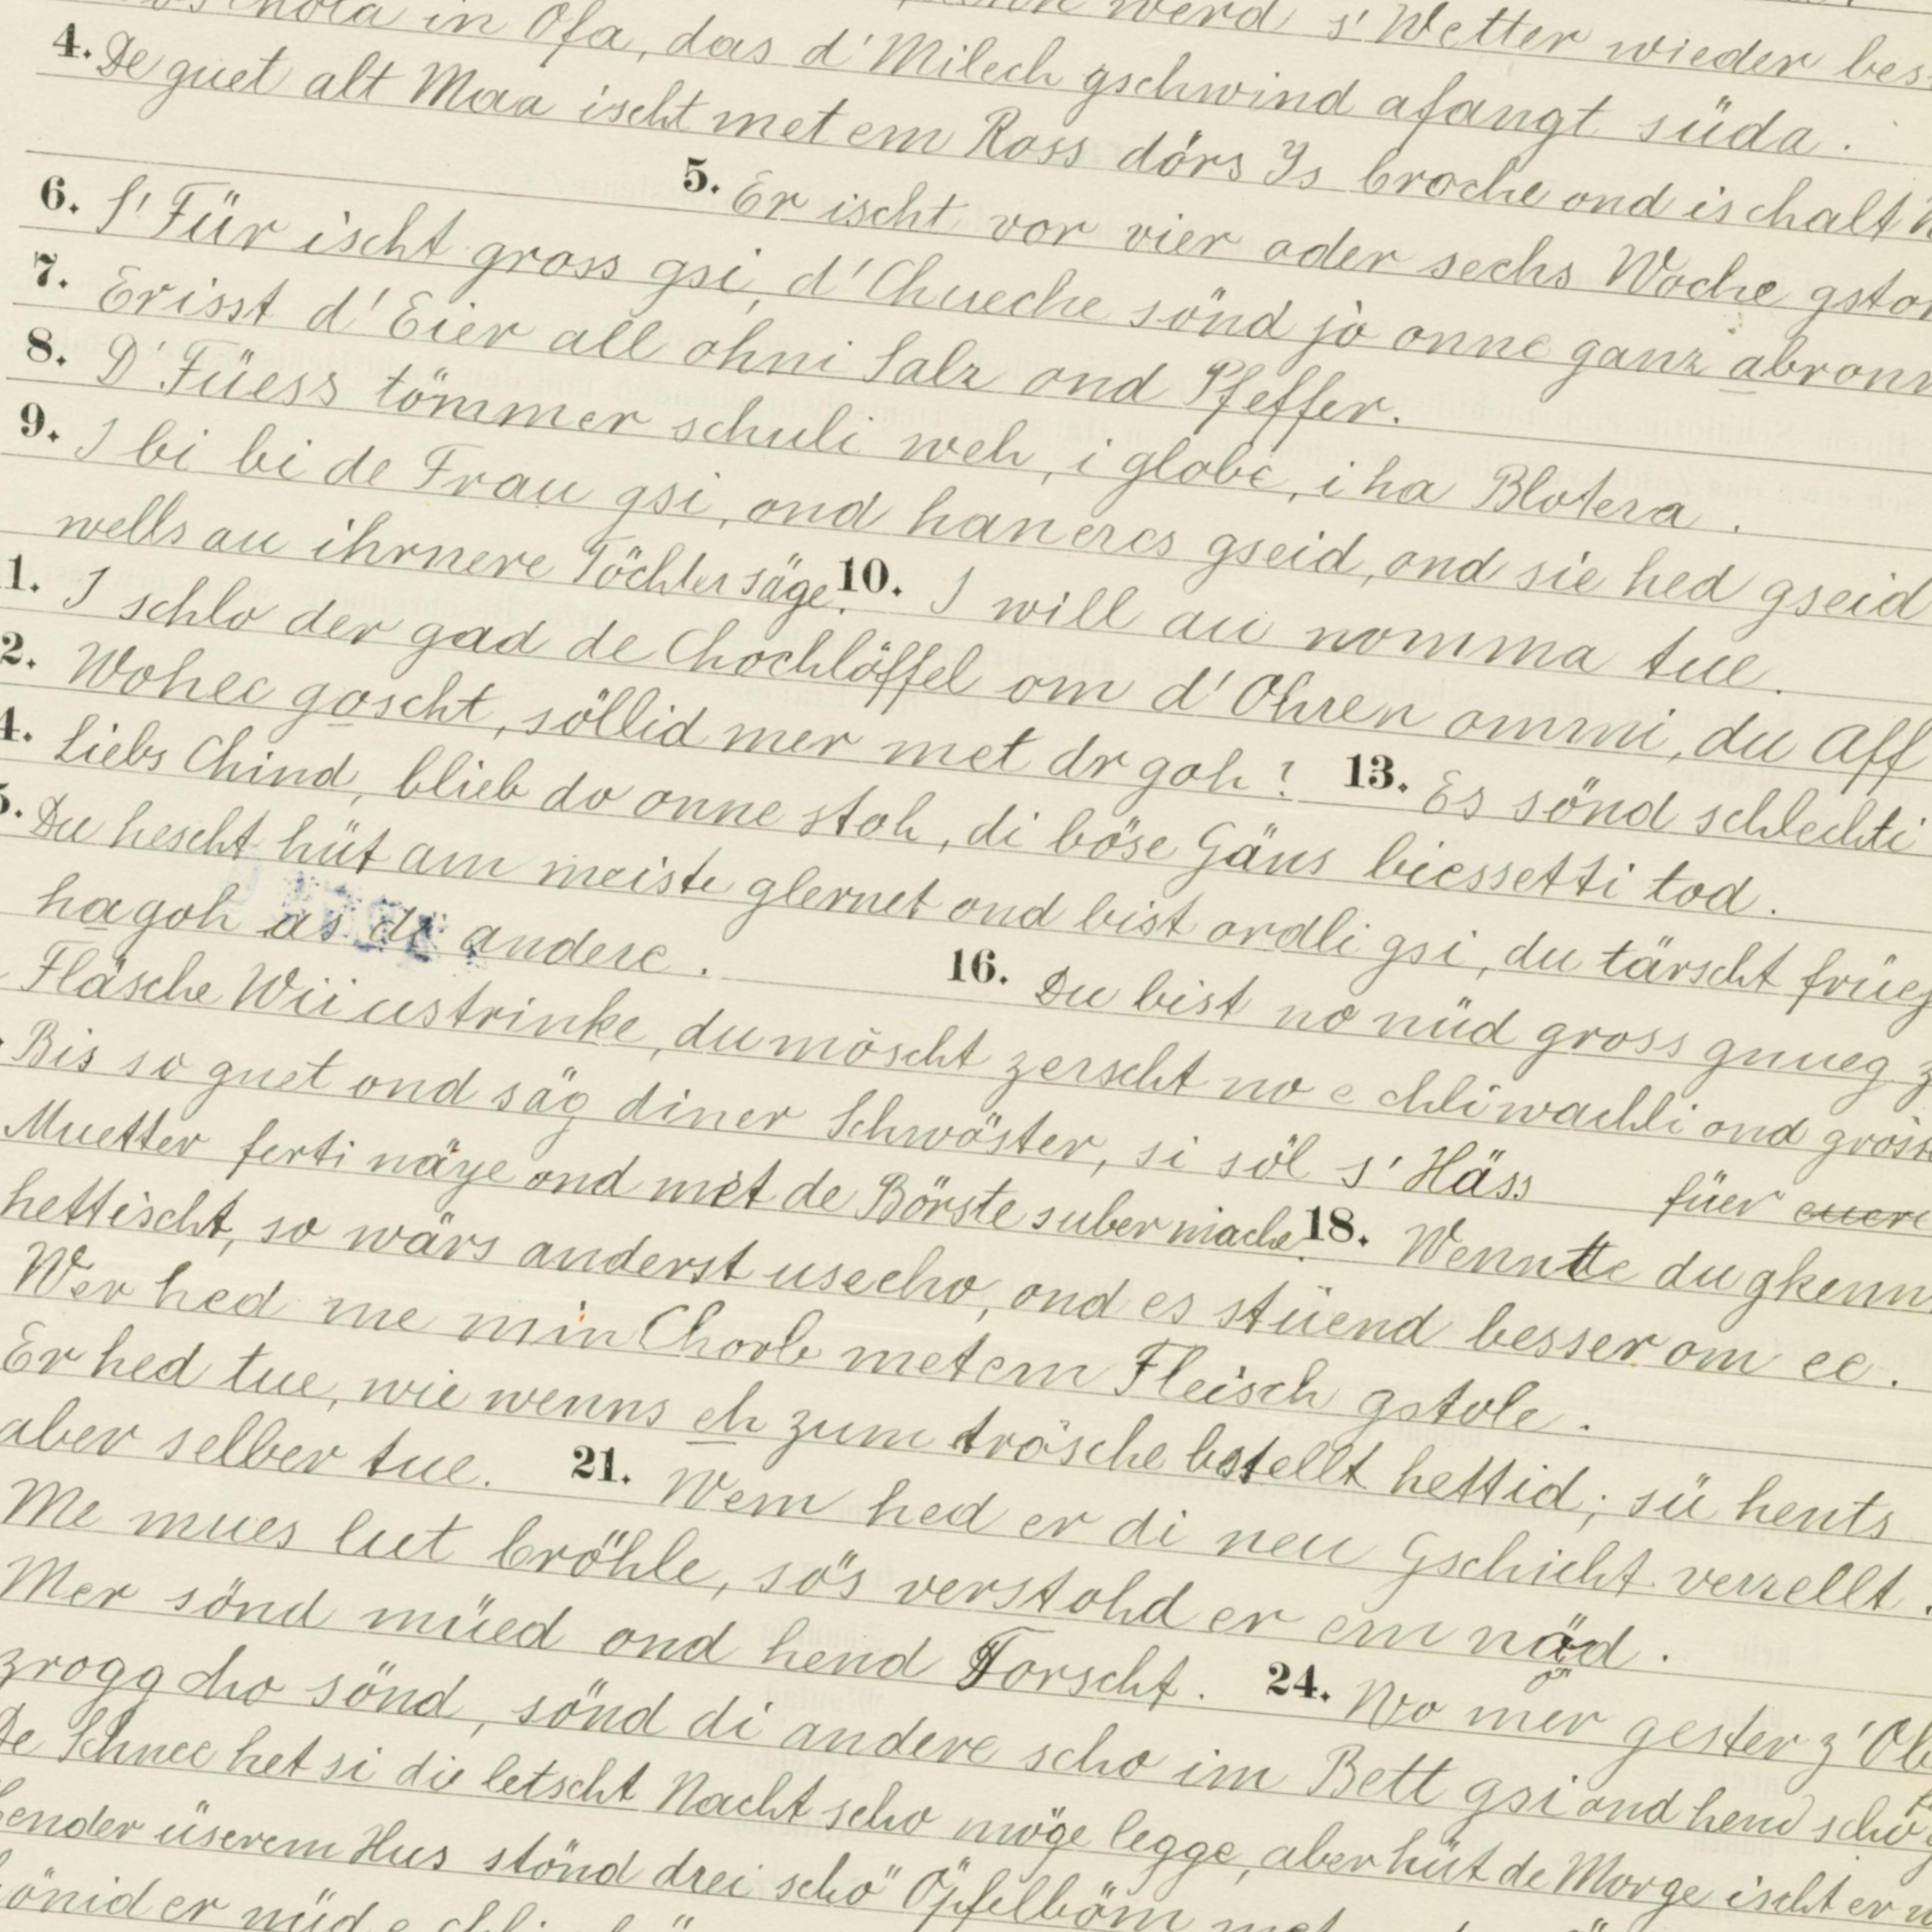 in Ofa, das d' Milech gschwind afangt süda. werd s' Wetter wieder
4. De guet alt Maa ischt met em Ross dörs Ys broche ond is chalt
5. Er ischt vor vier oder sechs Woche
6. S' Für ischt gross gsi, d' Chueche sönd jò onne ganz
7. Er isst d' Eier all ohni Salz ond Pfeffer.
8. D' Füess tömmer schuli weh, i globe, i ha Blotera.
9. I bi bi de Frau gsi, ond han eres gseid, ond sie hed gseid
wells au ihrnere Töchter säge. 10. I will au nomma tue.
1. I schlo der gad de Chochlöffel om d' Ohren ommi, du Aff
2. Wohee goscht, söllid mer met dr goh? 13. Es sönd schlechti
4. Liebs Chind, blieb do onne stoh, di böse Gäns biessetti tod.
5. Du hescht hüt am meiste glernet ond bist ordli gsi, du tärscht
ha goh as di andere. 16. Du bist no nüd gross gnueg
Fläsche Wii ustrinke, du möscht zerscht no e chli wachli ond
Bis so guet ond säg diner Schwöster, si söl s' Häss füer
Muetter ferti näye ond met de Börste suber mache. 18. Wennte du
hettischt, so wärs anderst usecho, ond es stüend besser om ee.
Wer hed me min Chorb met em Fleisch gstole.
Er hed tue, wie wenns eh zum trösche bstellt hettid; sü hents
aber selber tue. 21. Wem hed er di neu Gschicht verzellt.
Me mues lut bröhle, sös verstohd er em näd.
Mer sönd müed ond hend Torscht. 24. Wo mer gester
zrogg cho sönd, sönd di andere scho im Bett gsi ond hend
De Schnee het si die letscht Nacht scho möge legge, aber hüt de Morge ischt er
üserem Hus stönd drei schö Öpfelböm
er nüd e chli